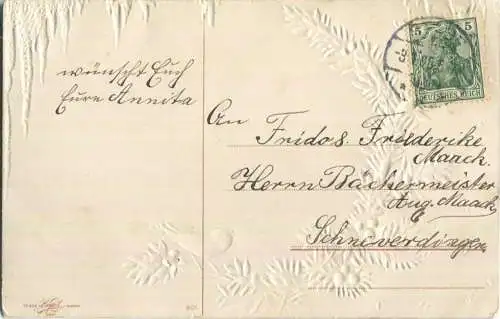 wünscht Euch
Eure Annita
An
Fridos. Friederike
Maack.
Herrn Bäckermeister
Aug. Maack
Schneverdingen
5 5
DEUTSCHES REICH